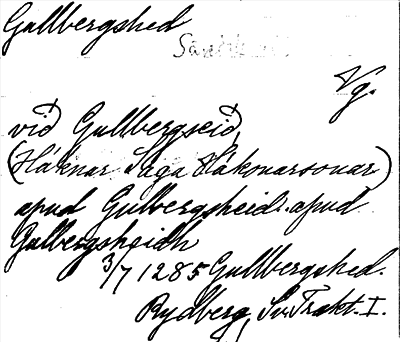 Gullbergshed
Vg.
vid Gullbergseid
(Háknar Saga Hákonarsonar)
apud Gulbergsheid. apud
Gulbergsheidh
3/7 1285 Gullbergshed.
Rydberg, Sv. Trakt. I.